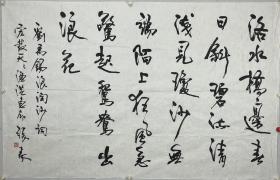 洛水橋邊春
日斜碧流清
淺見瓊沙無
端陌上狂風急
驚起鴛鴦出
浪花
劉禹錫浪淘沙詞